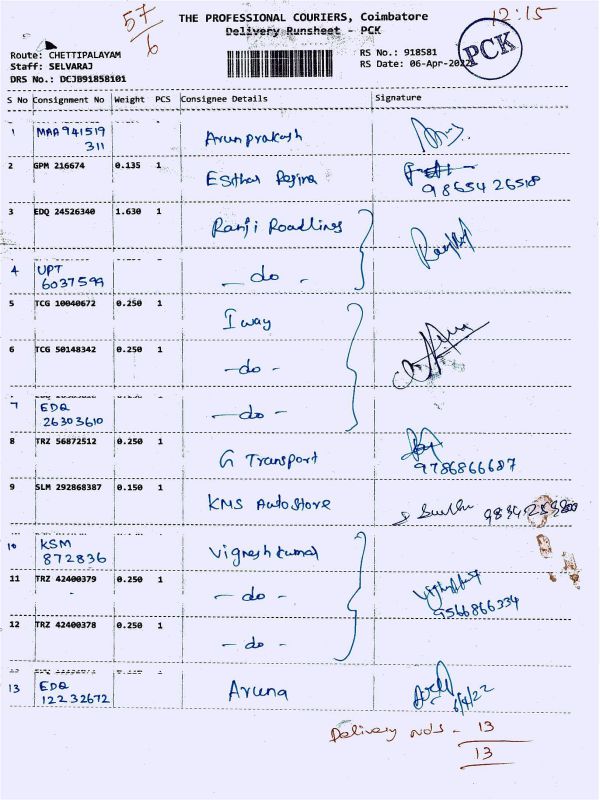 57
6
12:15
THE PROFESSIONAL COURIERS, Coimbatore
Delivery Runsheet - PCK
PCK
Route: CHETTIPALAYAM
Staff: SELVARAJ
DRS No.: DCJB91858101
RS No.: 918581
RS Date: 06-Apr-2022
S No Consignment No Weight PCS Consignee Details Signature
1 MAA 941519
311 Arunprakash
2 GPM 216674 0.135 1 Esther Regina
98654 26518
3 EDQ 24526340 1.630 1 Ranji Roadlines
4 UPT
6037599 - do -
5 TCG 10040672 0.250 1 I way
6 TCG 50148342 0.250 1 - do -
7 EDQ
26303610 - do -
8 TRZ 56872512 0.250 1 G Transport
9786866687
9 SLM 292868387 0.150 1 KMS Autostore
10 KSM
872836 Vignesh kumar
11 TRZ 42400379 0.250 1 - do -
9566866334
12 TRZ 42400378 0.250 1 - do -
13 EDQ
12232672 Aruna
6/4/22
Delivery nos - 13
13